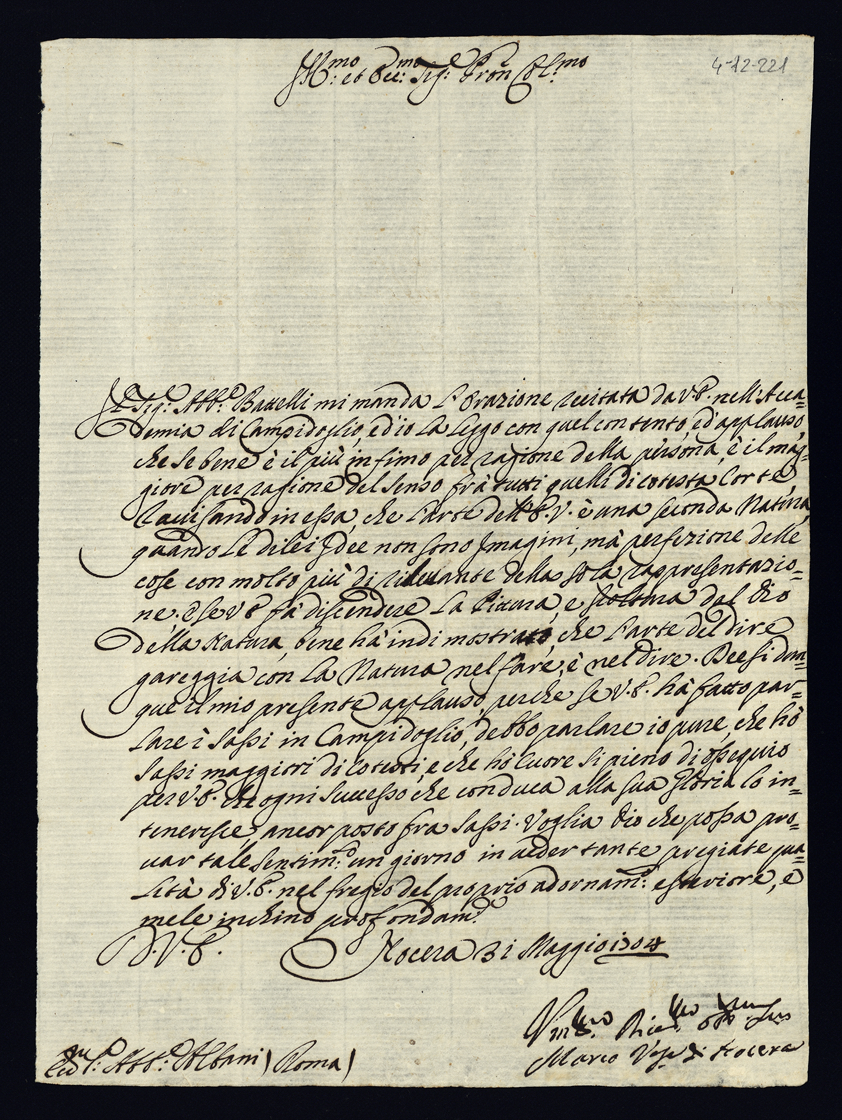 Ill:mo et Ecc:mo Sig:re Pron Col:mo
4-12-221
Il Sig: Abb:e Battelli mi manda l'Orazione recitata da V.E. nell'Acca=
demia di Campidoglio, ed io la leggo con quel contento, ed applauso,
che se bene è il più infimo per ragione della persona, è il mag=
giore per ragione del senso frà tutti quelli di cotesta Corte
ravisando in essa, che l'arte dell'E.V. è una seconda Natura,
quando le di lei Idee non sono Imagini, mà perfezione delle
cose con molto più di rilevante della sola rappresentazio=
ne. E se V.E. fà discendere la Pittura, e Scoltura dal Dio
della Natura, bene hà indi mostrato, che l'arte del dire
gareggia con la Natura nel fare, è nel dire. Deesi dun=
que il mio presente applauso, perche se V.E. hà fatto par=
lare i Sassi in Campidoglio, debbo parlare io pure, che hò
Sassi maggiori di cotesti, e che hò Cuore si pieno di ossequio
per V.E. che ogni successo che conduca alla sua Gloria lo in=
tenerisce, ancor posto fra Sassi. Voglia Dio che possa pro=
var tale sentim:to un giorno in veder tante pregiate qua=
lità di V.E. nel fregio del proprio adornam:to esteriore, e
mele inchino profondam:te
D.V.E. Nocera 31 Maggio 1704
Marco Ves:o di Nocera
S:r Abb:e Albani) Roma)